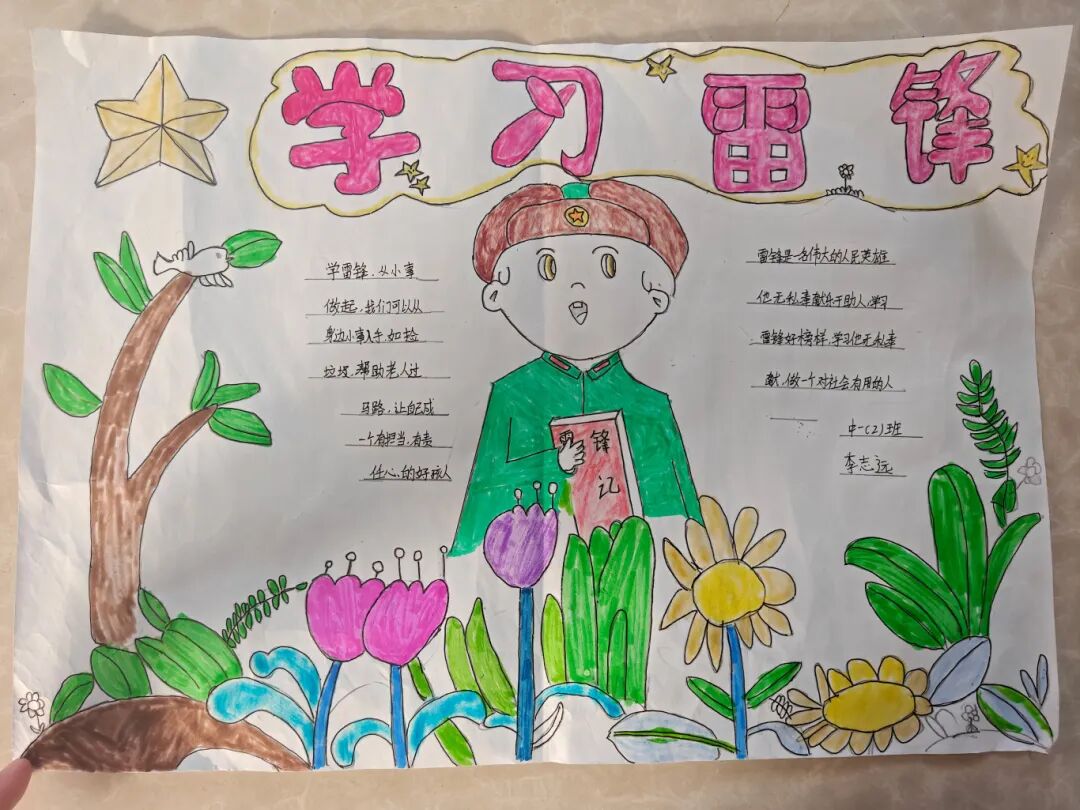 学习雷锋
学雷锋,从小事
做起,我们可以从
身边小事入手,如捡
垃圾,帮助老人过
马路,让自己成
一个有担当,有责
任心的好孩子
雷锋记
雷锋是一名伟大的人民英雄
他无私奉献乐于助人,学习
雷锋好榜样,学习他无私奉
献,做一个对社会有用的人
中一(2)班
李志远